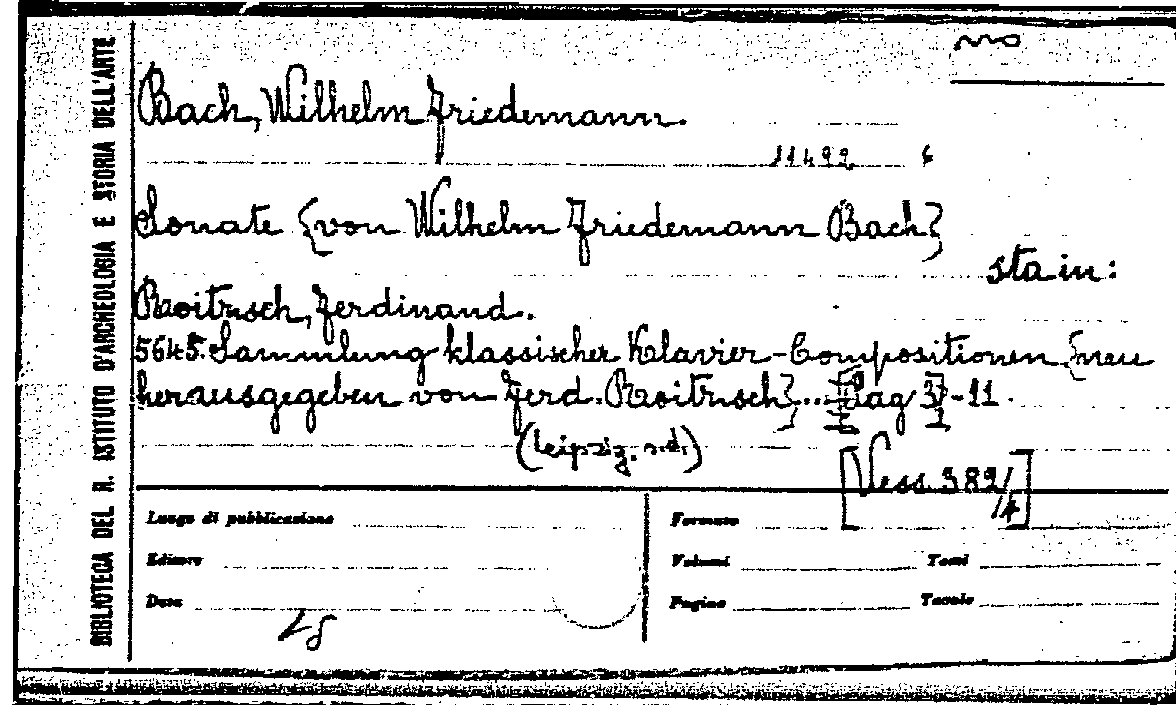 BIBLIOTECA DEL R. ISTITUTO D'ARCHEOLOGIA E STORIA DELL'ARTE
Bach, Wilhelm Friedemann.
11492
Sonate {von Wilhelm Friedemann Bach}
sta in:
Roitzsch, Ferdinand.
5645. Sammlung klassischer Klavier-Compositionen {neu
herausgegeben von Ferd. Roitzsch}... pag 3-11.
(Leipzig. s.d.)
[Vess. 382/4]
Luogo di pubblicazione
Formato
Editore
Volumi
Tomi
Data
Pagine
Tavole